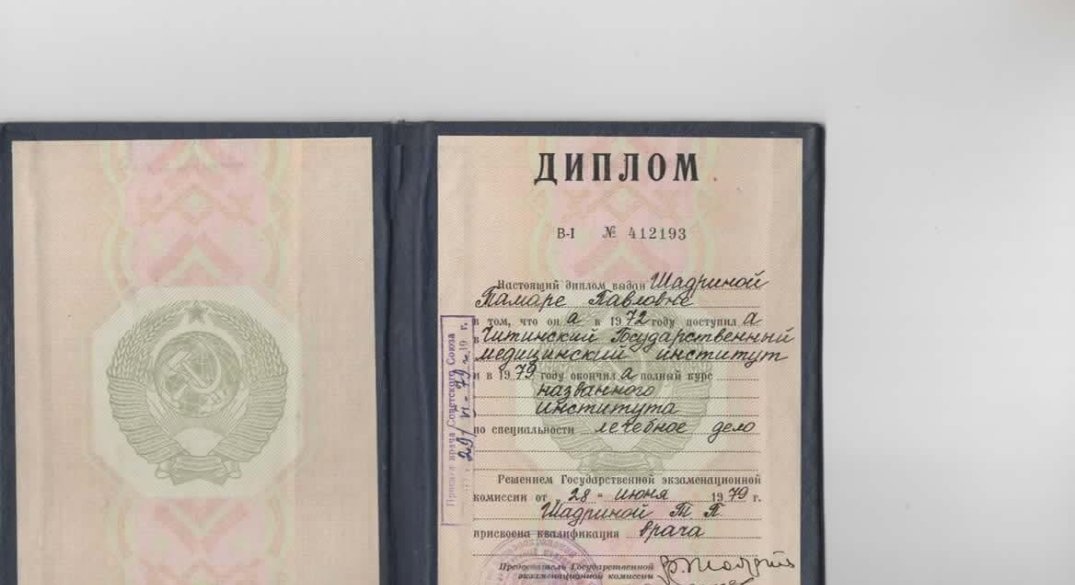 ДИПЛОМ
В-I № 412193
Настоящий диплом выдан Шадриной
Тамаре Павловне
в том, что он а в 1972 году поступил а
в Читинский Государственный
медицинский институт
и в 1979 году окончил а полный курс
названного
института
по специальности лечебное дело
Решением Государственной экзаменационной
комиссии от „28" июня 1979 г.
Шадриной Т П
присвоена квалификация врача
Председатель Государственной
экзаменационной комиссии
Присяга врача Советского Союза
29/VI-79 г.